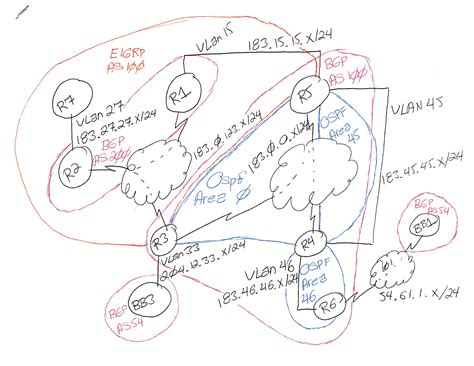 VLan 15
183.15.15.x/24
EIGRP
AS 100
BGP
AS 100
R7
R1
R5
VLan 27
183.27.27.x/24
VLAN 45
OSPF
Area
45
BGP
AS 200
R2
183.0.123.x/24
183.0.0.x/24
183.45.45.x/24
OSPF
Area 0
BGP
AS54
BB1
R3
VLan 33
204.12.33.x/24
R4
VLan 46
183.46.46.x/24
OSPF
Area
46
101.
54.61.1.x/24
BB3
BGP
AS54
R6